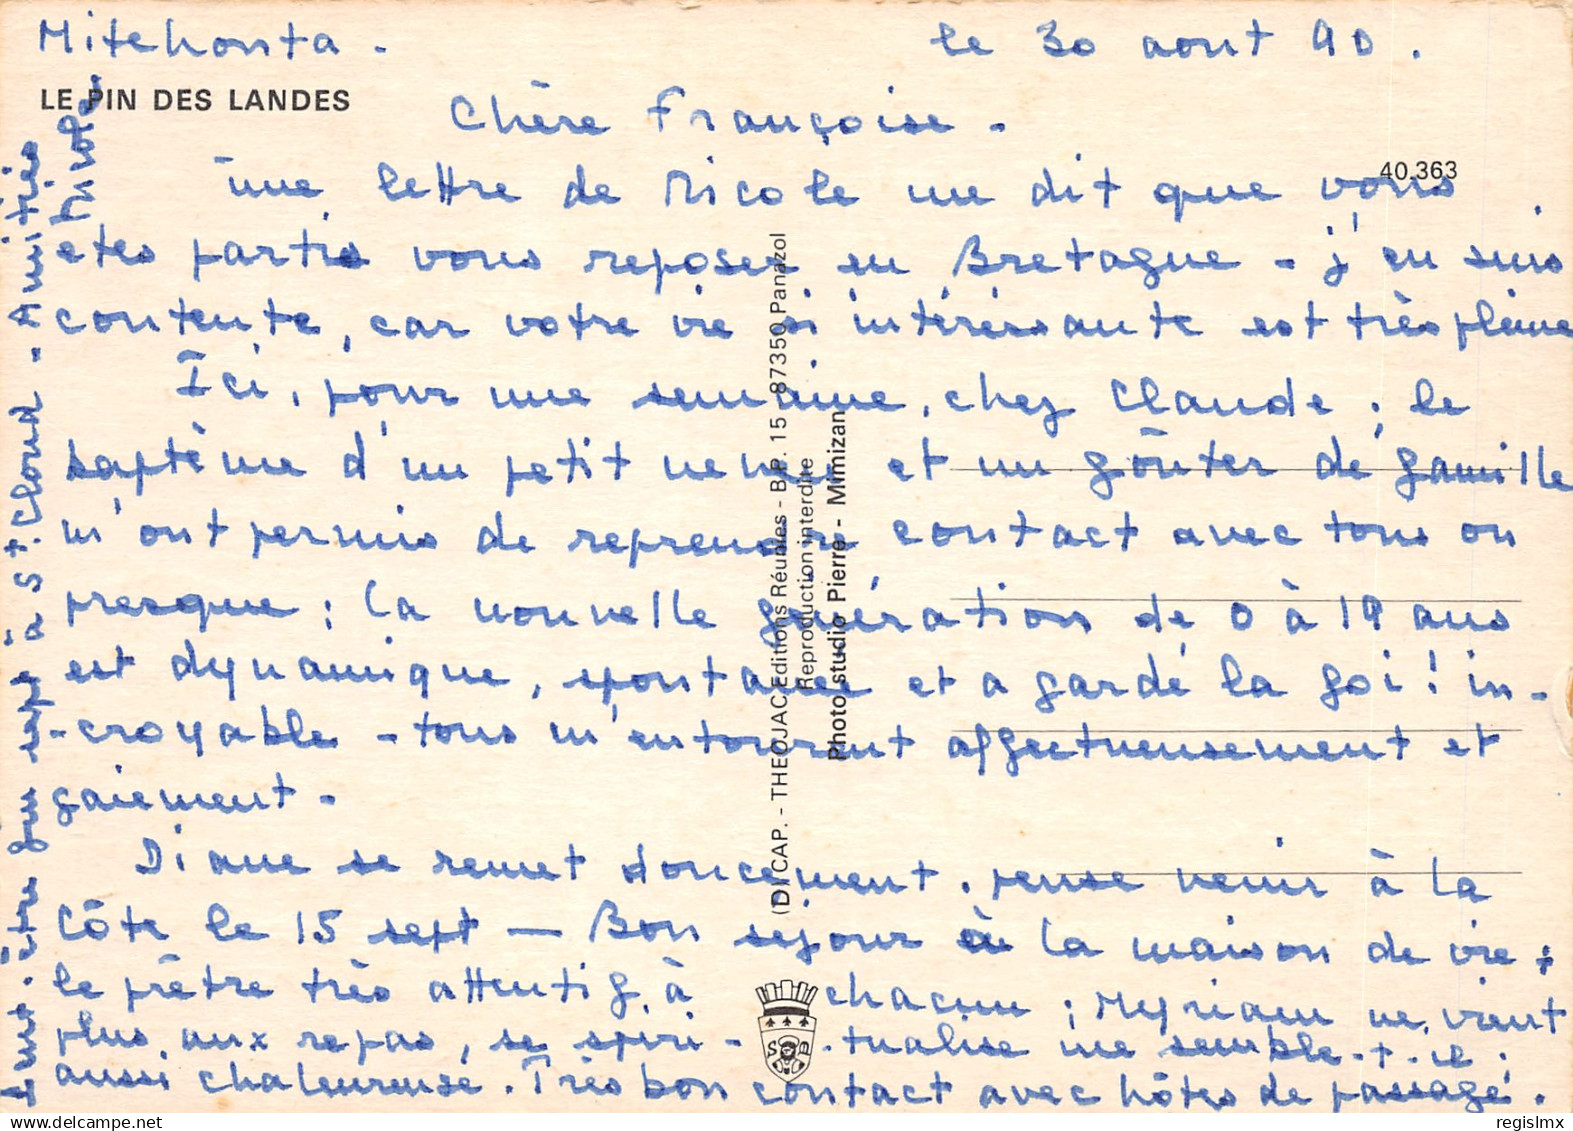 Mitchonta - le 30 aout 90.
LE PIN DES LANDES
Chère Françoise -
40.363
Une lettre de Nicole me dit que vous
etes partis vous reposer en Bretagne - j'en suis
contente, car votre vie si intéressante est très pleine
Ici, pour une semaine, chez Claude ; le
baptême d'un petit neveu et un goûter de famille
m'ont permis de reprendre contact avec tous ou
presque : la nouvelle génération de 0 à 19 ans
est dynamique, spontanée et a gardé la foi ! in-
-croyable - tous m'entourent affectueusement et
gaiement -
Diane se remet doucement, pense venir à la
Côte le 15 sept — Bon sejour à la maison de vie ;
le prêtre très attentif à chacun ; Myriam ne vient
plus aux repas, se spiri- -tualise me semble-t-il ;
aussi chaleureuse. Très bon contact avec hôtes de passage.
Peut-être fin sept à St. Cloud - Amitiés
(D) CAP. - THEOJAC Editions Réunies - B.P. 15 - 87350 Panazol
Reproduction interdite
Photo studio Pierre - Mimizan
regislmx